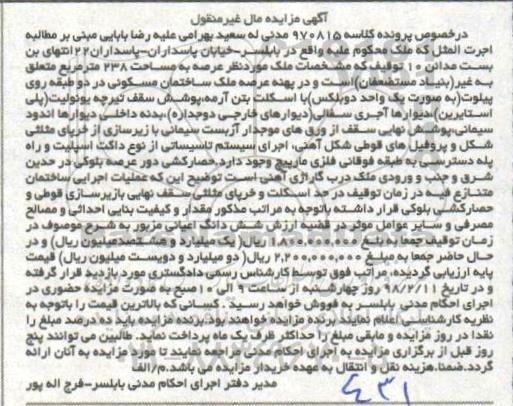 آگهی مزایده مال غیرمنقول
درخصوص پرونده کلاسه ۹۷۰۸۱۵ مدنی له سعید بهرامی علیه رضا بابایی مبنی بر مطالبه
اجرت المثل که ملک محکوم علیه واقع در بابلسر-خیابان پاسداران-پاسداران۲۲انتهای بن
بست مدائن ۱۰ توقیف که مشخصات ملک موردنظر عرصه به مساحت ۲۳۸ مترمربع متعلق
به غیر(بنیاد مستضعفان)است و در پهنه عرصه ملک ساختمان مسکونی در دو طبقه روی
پیلوت(به صورت یک واحد دوبلکس)با اسکلت بتن آرمه،پوشش سقف تیرچه یونولیت(پلی
استایرین)،دیوارها آجری سفالی(دیوارهای خارجی دوجداره)،بدنه داخلی دیوارها اندود
سیمانی،پوشش نهایی سقف از ورق های موجدار آزبست سیمانی با زیرسازی از خرپای مثلثی
شکل و پروفیل های قوطی شکل آهنی، اجرای سیستم تاسیساتی از نوع داکت اسپلیت و راه
پله دسترسی به طبقه فوقانی فلزی مارپیچ وجود دارد.حصارکشی دور عرصه بلوکی در حدین
شرق و جنب و ورودی ملک درب گاراژی آهنی است توضیح این که عملیات اجرایی ساختمان
متنازع فیه در زمان توقیف در حد اسکلت و خرپای مثلثی سقف نهایی بازیرسازی قوطی و
حصارکشی بلوکی قرار داشته باتوجه به مراتب مذکور مقدار و کیفیت بنایی احداثی و مصالح
مصرفی و سایر عوامل موثر در قضیه ارزش شش دانگ اعیانی مزبور به شرح موصوف در
زمان توقیف جمعا به بلغ ۱،۸۰۰،۰۰۰،۰۰۰ ریال(یک میلیارد و هشتصدمیلیون ریال) و در
حال حاضر جمعا به مبلغ ۲،۲۰۰،۰۰۰،۰۰۰ ریال(دو میلیارد و دویست میلیون ریال) قیمت
پایه ارزیابی گردیده، مراتب فوق توسط کارشناس رسمی دادگستری مورد بازدید قرار گرفته
و در تاریخ ۹۸/۲/۱۱ روز چهارشنبه از ساعت ۹ الی ۱۰ صبح به صورت مزایده حضوری در
اجرای احکام مدنی بابلسر به فروش خواهد رسید . کسانی که بالاترین قیمت را باتوجه به
نظریه کارشناسی اعلام نمایند برنده مزایده خواهند بود.برنده مزایده باید ده درصد مبلغ را
نقدا در روز مزایده و مابقی مبلغ را حداکثر ظرف یک ماه پرداخت نماید. طالبین می توانند پنج
روز قبل از برگزاری مزایده به اجرای احکام مدنی مراجعه نمایند تا مورد مزایده به آنان ارائه
گردد.ضمنا.هزینه نقل و انتقال به عهده خریدار مزایده می باشد.م/الف
مدیر دفتر اجرای احکام مدنی بابلسر-فرج اله پور
۴۳۱